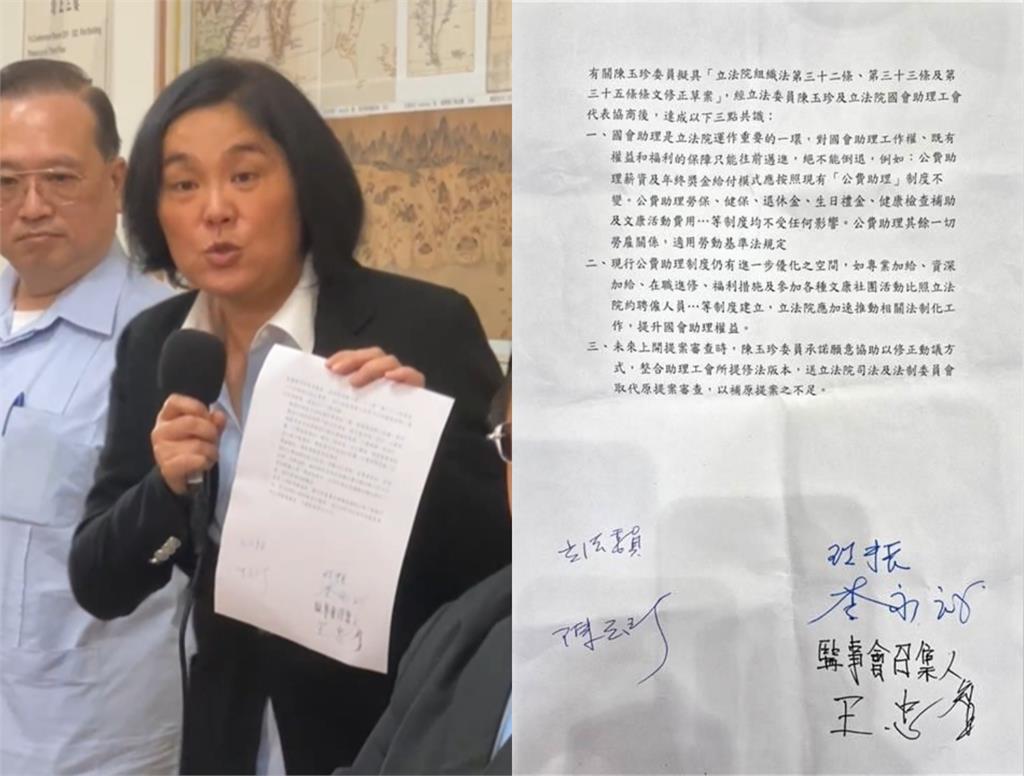 有關陳玉珍委員擬具「立法院組織法第三十二條、第三十三條及第
三十五條條文修正草案」，經立法委員陳玉珍及立法院國會助理工會
代表協商後，達成以下三點共識：
一、國會助理是立法院運作重要的一環，對國會助理工作權、既有
權益和福利的保障只能往前邁進，絕不能倒退，例如：公費助
理薪資及年終獎金給付模式應按照現有「公費助理」制度不
變。公費助理勞保、健保、退休金、生日禮金、健康檢查補助
及文康活動費用…等制度均不受任何影響。公費助理其餘一切
勞雇關係，適用勞動基準法規定
二、現行公費助理制度仍有進一步優化之空間，如專業加給、資深
加給、在職進修、福利措施及參加各種文康社團活動比照立法
院約聘僱人員…等制度建立，立法院應加速推動相關法制化工
作，提升國會助理權益。
三、未來上開提案審查時，陳玉珍委員承諾願意協助以修正動議方
式，整合助理工會所提修法版本，送立法院司法及法制委員會
取代原提案審查，以補原提案之不足。
立法委員
陳玉珍
監事會召集人
王忠